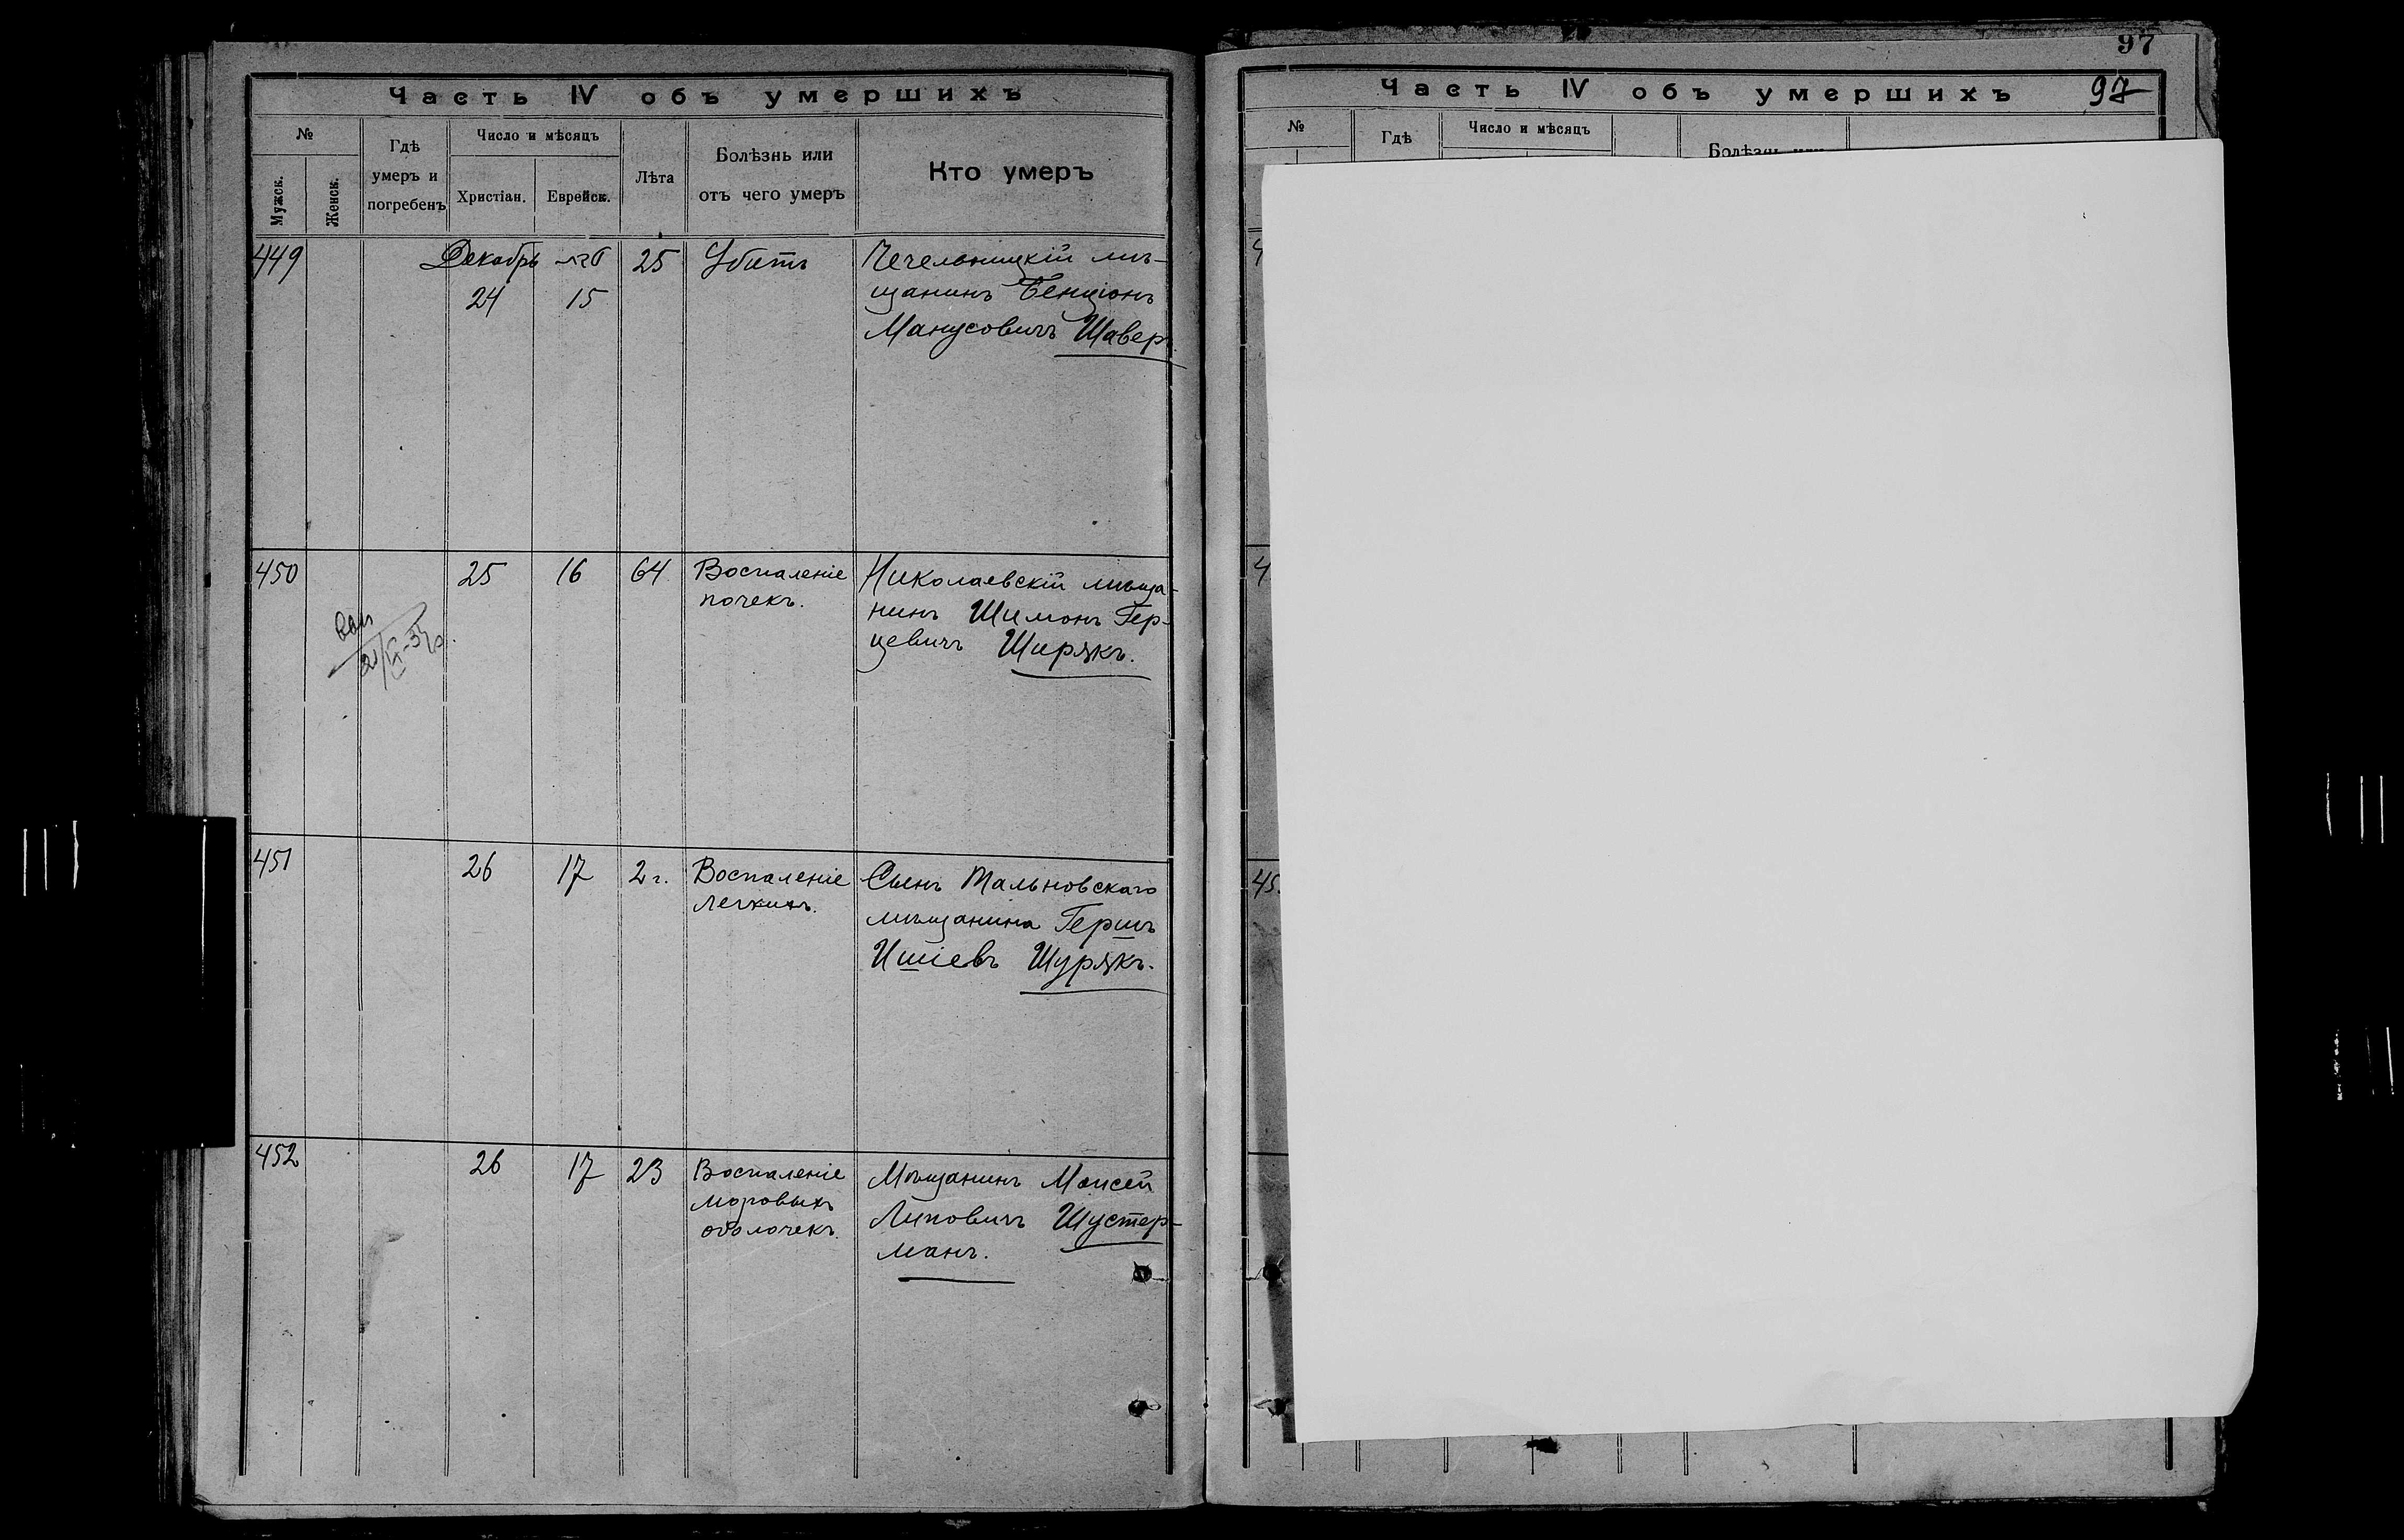 Часть IV объ умершихъ
№
Мужск.
Женск.
Гдѣ
умеръ и
погребенъ
Число и мѣсяцъ
Христіан.
Еврейск.
Лѣта
Болѣзнь или
отъ чего умеръ
Кто умеръ
449
Декабрь
24
15
25
Убитъ
Чечельницкій мѣ-
щанинъ Бенціонъ
Манусовичъ Шавер
450
25
16
64
Воспаленіе
почекъ.
Николаевскій мѣща-
нинъ Шимонъ Гер-
цевичъ Ширякъ.
451
26
17
2 г.
Воспаленіе
легкихъ.
Сынъ Тальновскаго
мѣщанина Гершъ
Ишіевъ Шурякъ.
452
26
17
23
Воспаленіе
мозговыхъ
оболочекъ.
Мѣщанинъ Моисей
Липовичъ Шустер-
манъ.
97
Часть IV объ умершихъ
97
№
Гдѣ
Число и мѣсяцъ
Болѣзнь или
4
4
45